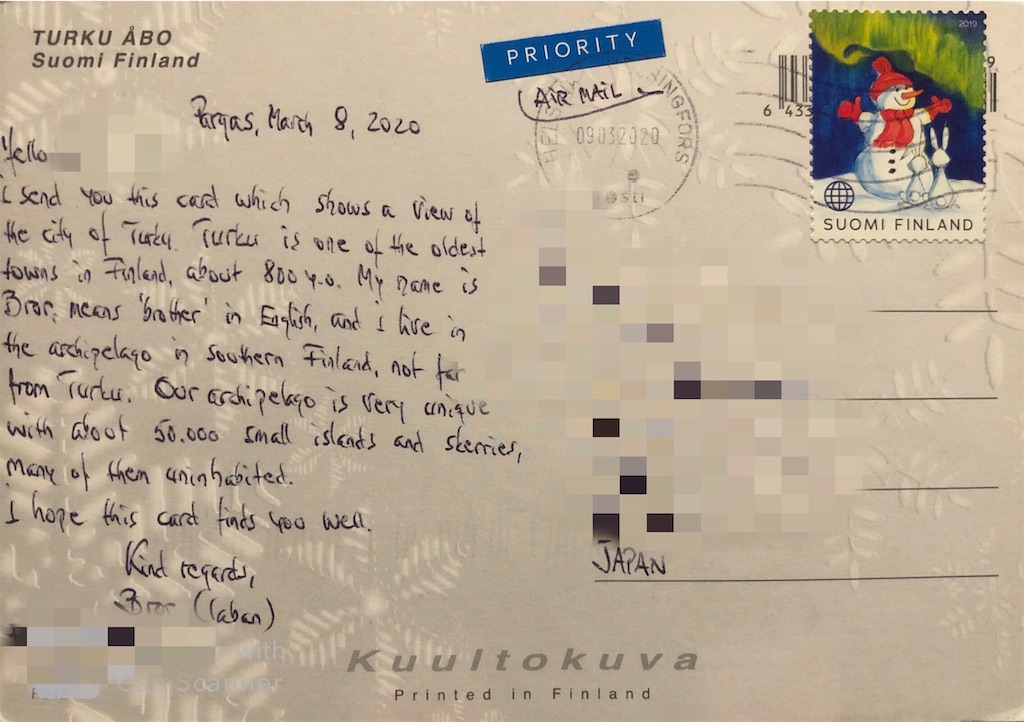 TURKU ÅBO
Suomi Finland
PRIORITY
AIR MAIL
2019
9
6 433
HELSI HINGFORS
09032020
Posti
SUOMI FINLAND
Pargas, March 8, 2020
Hello
I send you this card which shows a view of
the city of Turku. Turku is one of the oldest
towns in Finland, about 800 y.o. My name is
Bror, means 'brother' in English, and I live in
the archipelago in southern Finland, not far
from Turku. Our archipelago is very unique
with about 50.000 small islands and skerries,
many of them uninhabited.
I hope this card finds you well.
Kind regards,
Bror (laban)
JAPAN
with
CamScanner
Kuultokuva
Printed in Finland